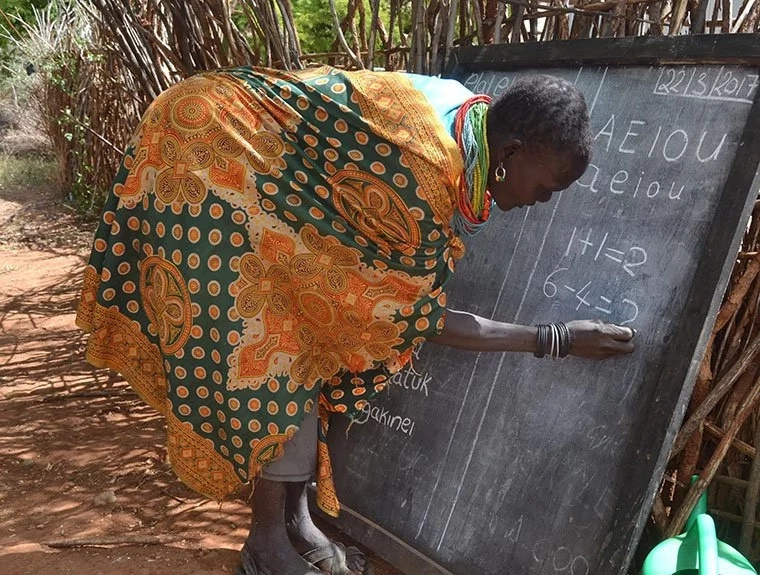 22/3/2017
AEIOU
aeiou
1+1=2
6-4=2
atuk
gakinei